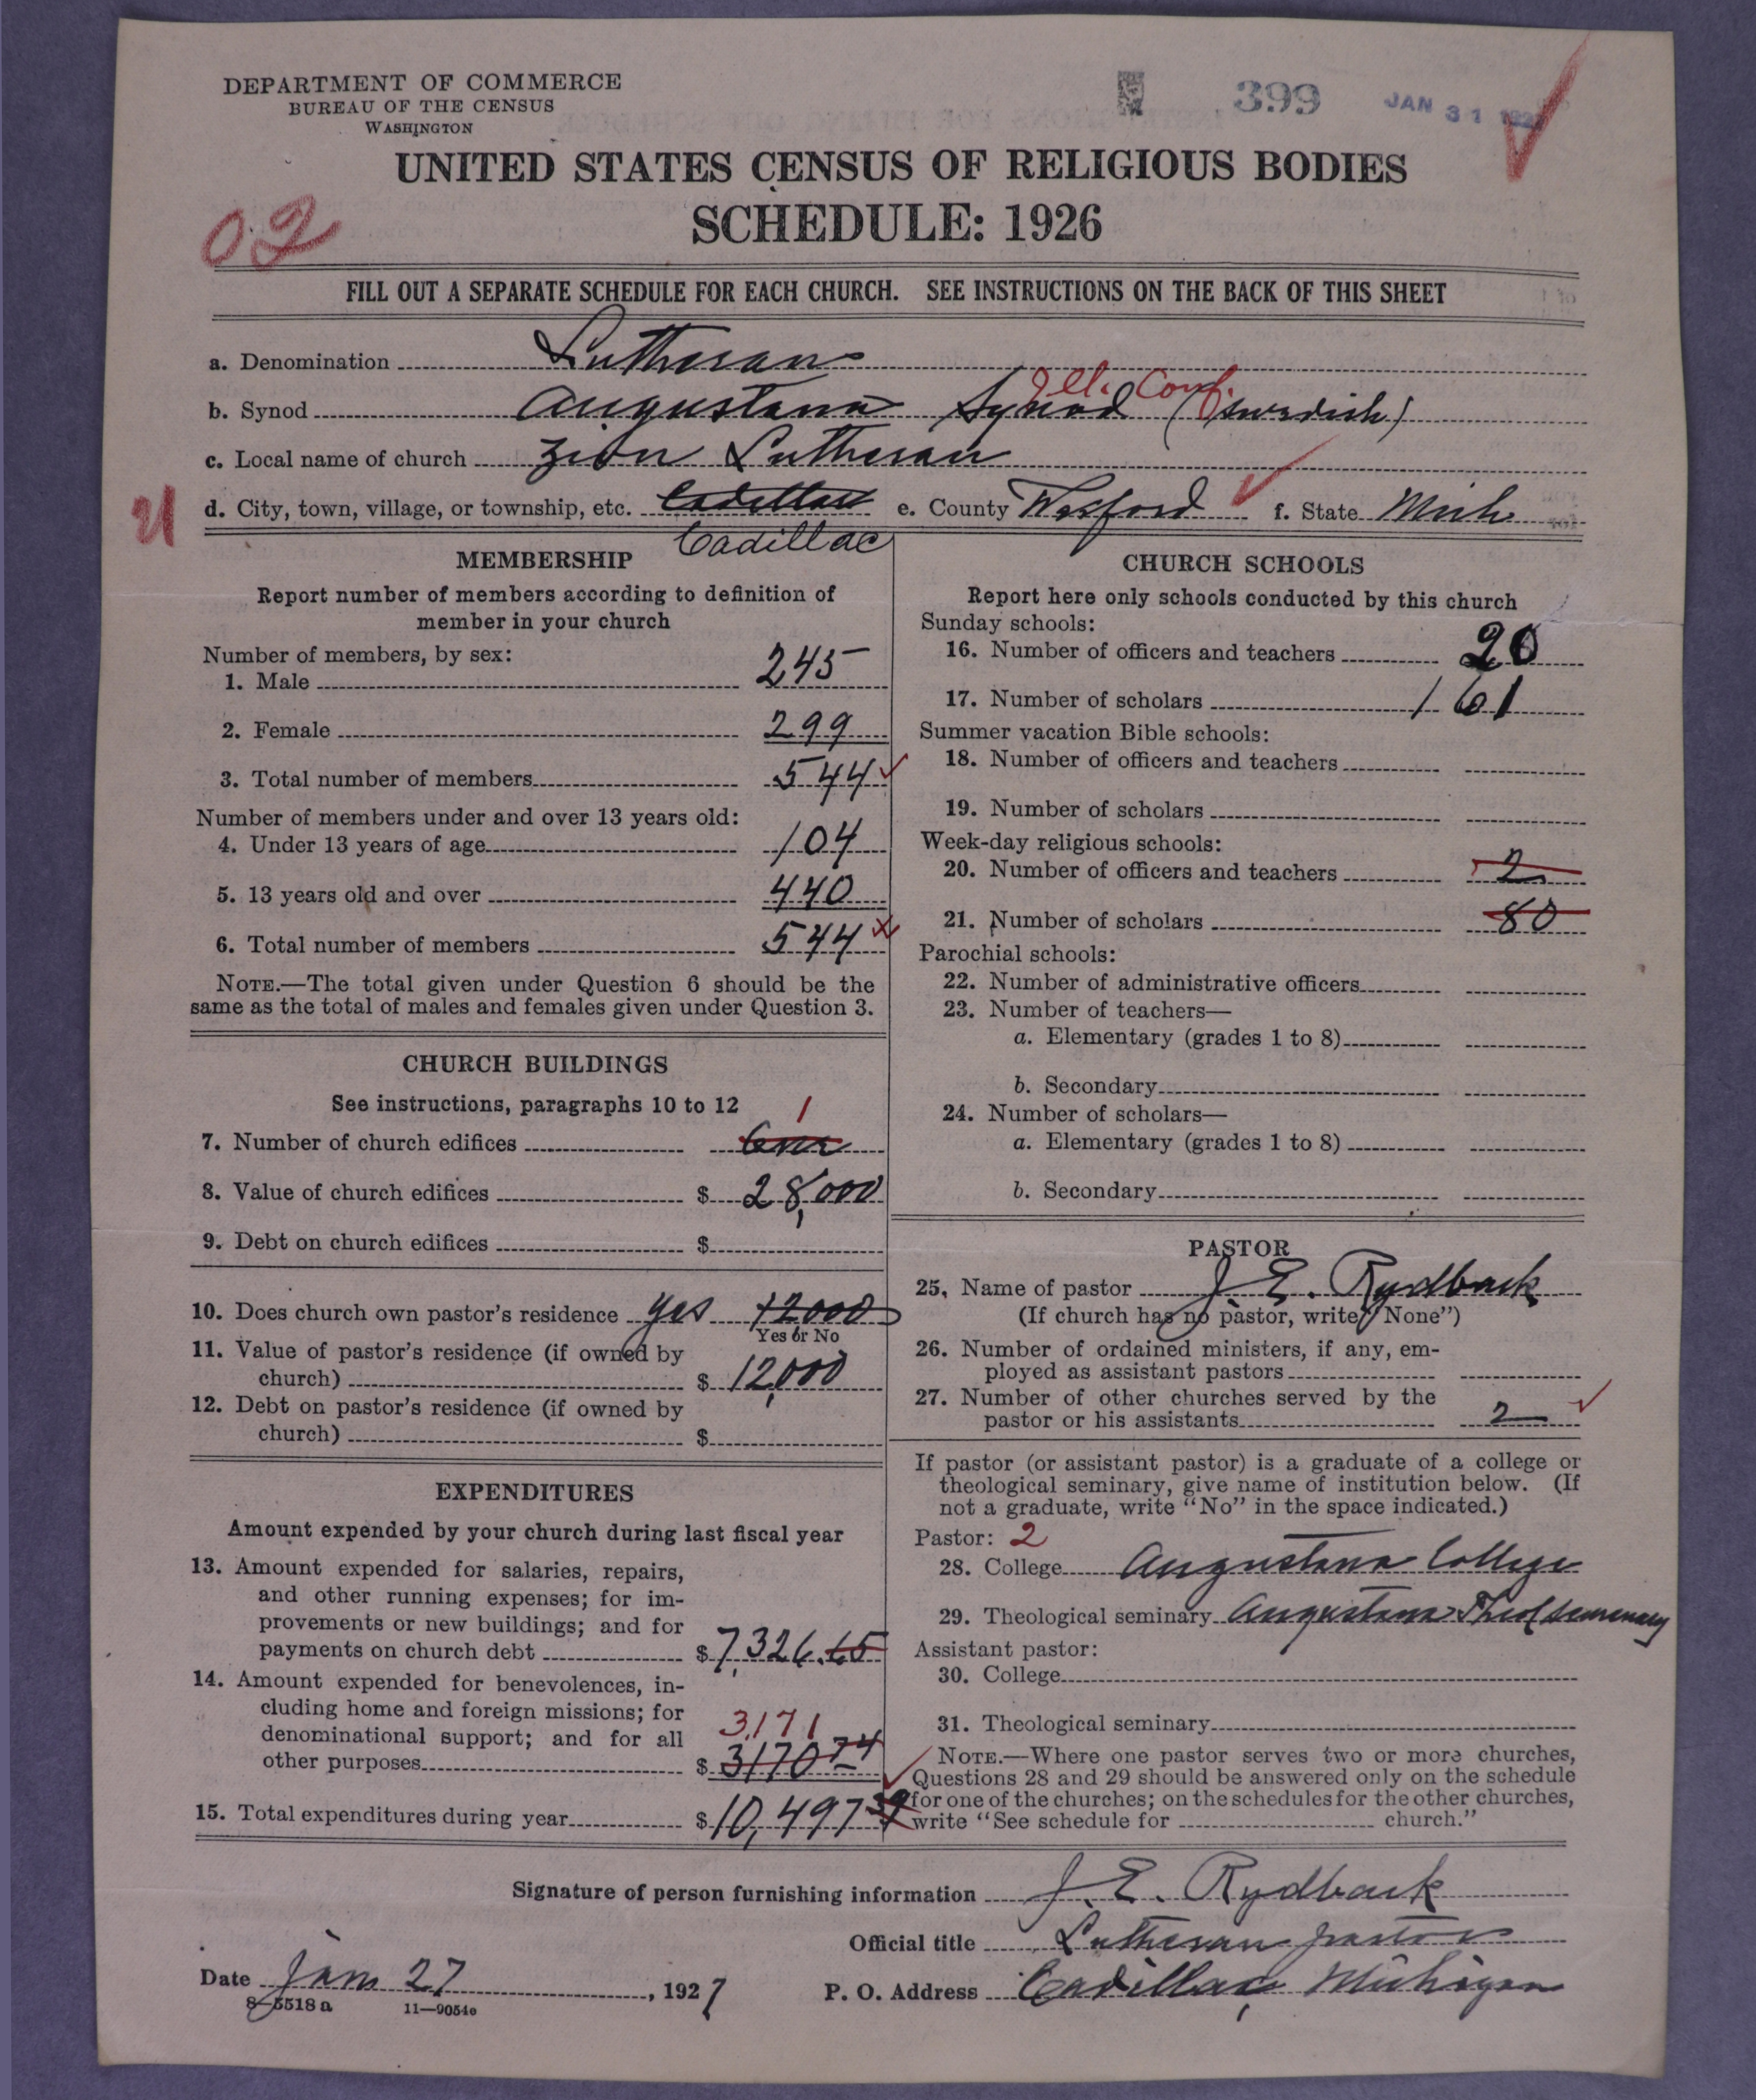 DEPARTMENT OF COMMERCE
BUREAU OF THE CENSUS
WASHINGTON
399 JAN 31
UNITED STATES CENSUS OF RELIGIOUS BODIES
SCHEDULE: 1926
02
FILL OUT A SEPARATE SCHEDULE FOR EACH CHURCH. SEE INSTRUCTIONS ON THE BACK OF THIS SHEET
a. Denomination Lutheran
Ill. Conf.
b. Synod Augustana Synod (Swedish)
c. Local name of church Zion Lutheran
21 d. City, town, village, or township, etc. Cadillac e. County Wexford f. State Mich
Cadillac
MEMBERSHIP
Report number of members according to definition of
member in your church
Number of members, by sex:
1. Male 245
2. Female 299
3. Total number of members 544
Number of members under and over 13 years old:
4. Under 13 years of age 104
5. 13 years old and over 440
6. Total number of members 544
NOTE.—The total given under Question 6 should be the
same as the total of males and females given under Question 3.
CHURCH BUILDINGS
See instructions, paragraphs 10 to 12 1
7. Number of church edifices One
8. Value of church edifices $ 28,000
9. Debt on church edifices $
10. Does church own pastor's residence yes 12000
Yes or No
11. Value of pastor's residence (if owned by
church) $ 12,000
12. Debt on pastor's residence (if owned by
church) $
EXPENDITURES
Amount expended by your church during last fiscal year
13. Amount expended for salaries, repairs,
and other running expenses; for im-
provements or new buildings; and for
payments on church debt $ 7,326.65
14. Amount expended for benevolences, in-
cluding home and foreign missions; for
denominational support; and for all 3171
other purposes $ 3170 74
15. Total expenditures during year $ 10,497 39
CHURCH SCHOOLS
Report here only schools conducted by this church
Sunday schools:
16. Number of officers and teachers 20
17. Number of scholars 161
Summer vacation Bible schools:
18. Number of officers and teachers
19. Number of scholars
Week-day religious schools:
20. Number of officers and teachers 2
21. Number of scholars 80
Parochial schools:
22. Number of administrative officers
23. Number of teachers—
a. Elementary (grades 1 to 8)
b. Secondary
24. Number of scholars—
a. Elementary (grades 1 to 8)
b. Secondary
PASTOR
25. Name of pastor J. E. Rydback
(If church has no pastor, write "None")
26. Number of ordained ministers, if any, em-
ployed as assistant pastors
27. Number of other churches served by the
pastor or his assistants 2
If pastor (or assistant pastor) is a graduate of a college or
theological seminary, give name of institution below. (If
not a graduate, write "No" in the space indicated.)
Pastor: 2
28. College Augustana College
29. Theological seminary Augustana Theol seminary
Assistant pastor:
30. College
31. Theological seminary
NOTE.—Where one pastor serves two or more churches,
Questions 28 and 29 should be answered only on the schedule
for one of the churches; on the schedules for the other churches,
write "See schedule for church."
Signature of person furnishing information J. E. Rydback
Official title Lutheran pastor
Date Jan 27, 1927 P. O. Address Cadillac, Michigan
8-5518 a 11—9054c